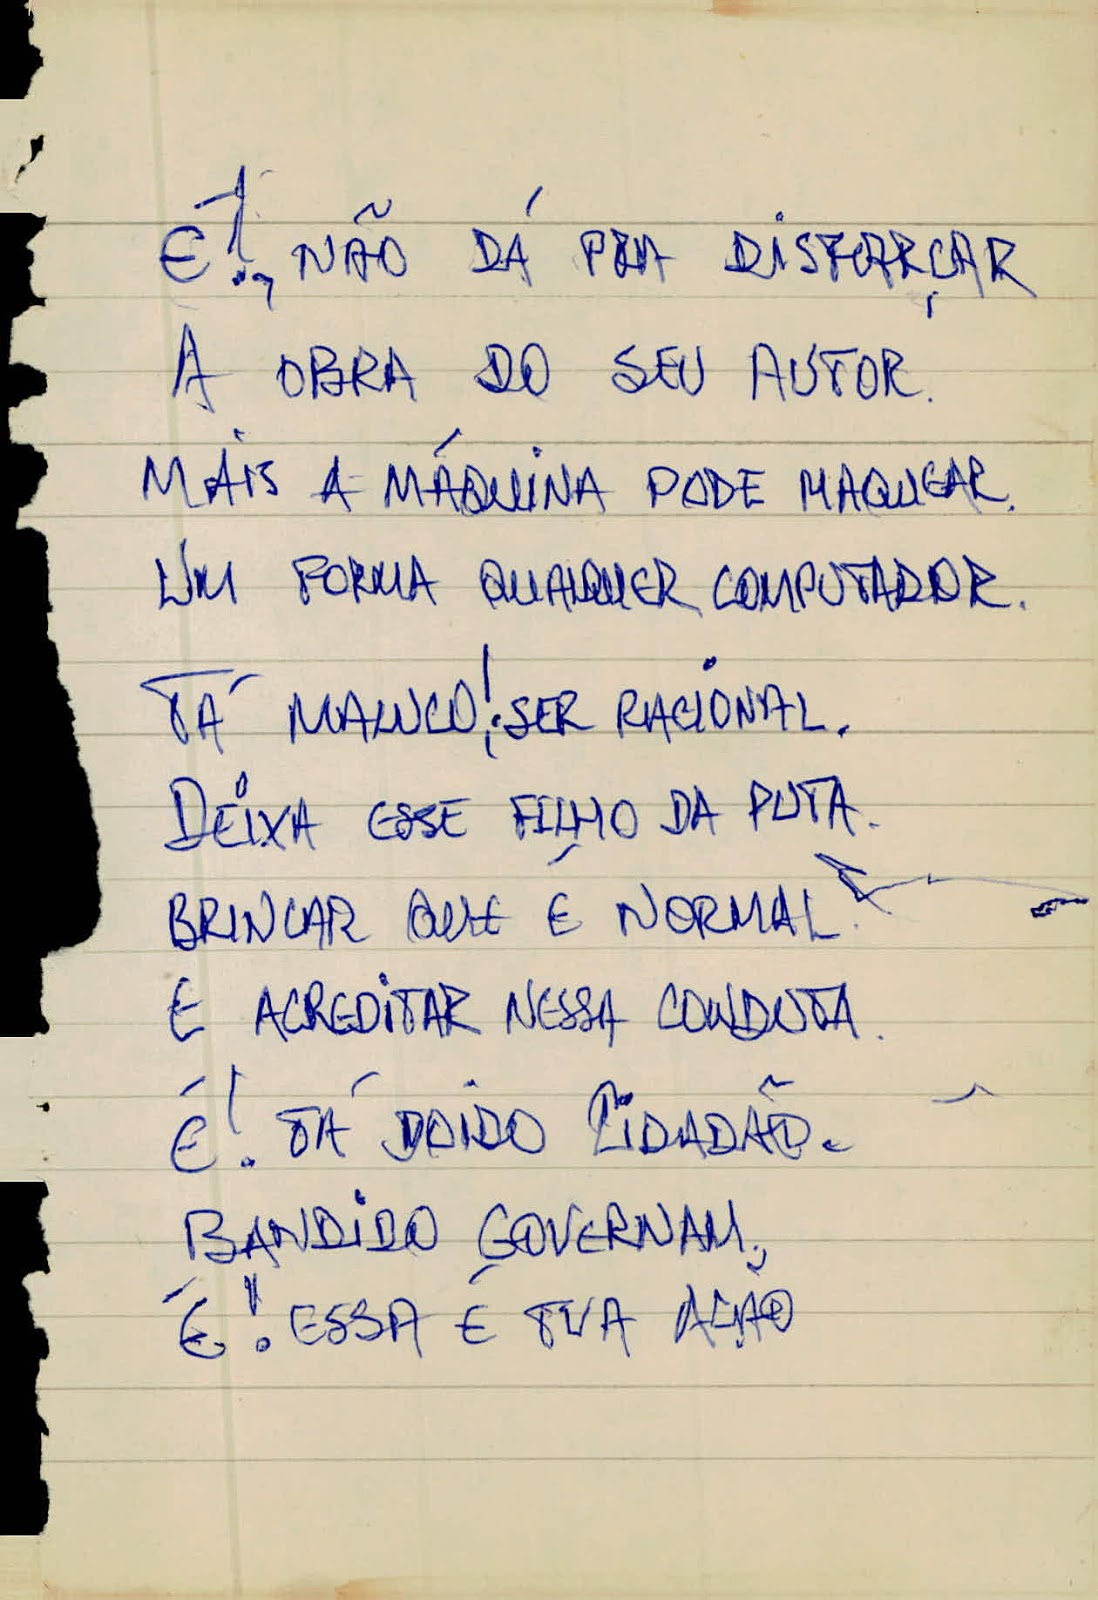 É!, NÃO DÁ PRA DISFARÇAR
A OBRA DO SEU AUTOR.
MAIS A MÁQUINA PODE MAQUEAR.
UM FORMA QUALQUER COMPUTADOR.
TÁ MALUCO! SER RACIONAL.
DEIXA ESSE FILHO DA PUTA.
BRINCAR QUE É NORMAL.
E ACREDITAR NESSA CONDUTA.
É! TÁ DOIDO CIDADÃO.
BANDIDO GOVERNAM,
É! ESSA É TUA AÇÃO